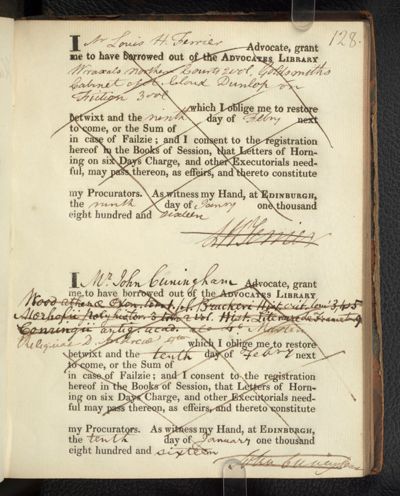 128.
I Mr Louis H. Ferrier Advocate, grant
me to have borrowed out of the ADVOCATES LIBRARY
Wraxals Northern Courts 2 vol, Goldsmiths
Cabinet of Dunlop on
Fiction 3 vol
which I oblige me to restore
betwixt and the ninth day of Febry next
to come, or the Sum of
in case of Failzie; and I consent to the registration
hereof in the Books of Session, that Letters of Horn-
ing on six Days Charge, and other Executorials need-
ful, may pass thereon, as effeirs, and thereto constitute
my Procurators. As witness my Hand, at EDINBURGH,
the ninth day of Janry one thousand
eight hundred and sixteen
Ferrier
I Mr. John Cuningham Advocate, grant
me to have borrowed out of the ADVOCATES LIBRARY
Wood Athenæ Oxon. Bruckeri Hist. crit.
Morhofii Polyhistor Hist. Litteraire de
Conringii antiq. acad. 4to
Reliquiae
which I oblige me to restore
betwixt and the tenth day of Febry next
to come, or the Sum of
in case of Failzie; and I consent to the registration
hereof in the Books of Session, that Letters of Horn-
ing on six Days Charge, and other Executorials need-
ful may pass thereon, as effeirs, and thereto constitute
my Procurators. As witness my Hand, at EDINBURGH,
the tenth day of January one thousand
eight hundred and sixteen
John Cuningham